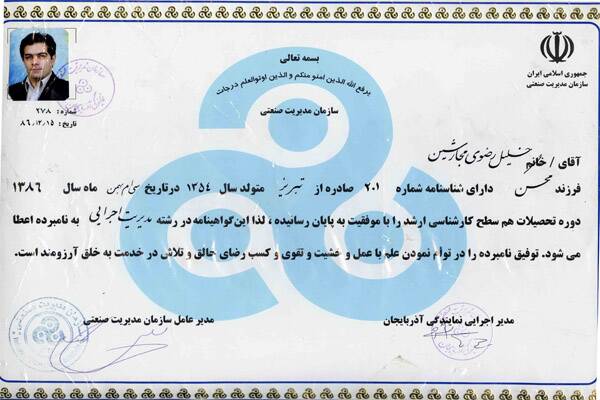 بسمه تعالی
یرفع الله الذین امنو منکم و الذین اوتوالعلم درجات
سازمان مدیریت صنعتی
جمهوری اسلامی ایران
سازمان مدیریت صنعتی
شماره: ۲۷۸
تاریخ: ۸۶/۱۲/۱۵
آقای / خانم خلیل رضوی
فرزند محسن دارای شناسنامه شماره ۲۰۱ صادره از تبریز متولد سال ۱۳۵۴ درتاریخ سی ام بهمن ماه سال ۱۳۸۶
دوره تحصیلات هم سطح کارشناسی ارشد را با موفقیت به پایان رسانیده ، لذا این گواهینامه در رشته مدیریت اجرایی به نامبرده اعطا
می شود. توفیق نامبرده را در توأم نمودن علم با عمل و خشیت و تقوی و کسب رضای خالق و تلاش در خدمت به خلق آرزومند است.
مدیر اجرایی نمایندگی آذربایجان
مدیر عامل سازمان مدیریت صنعتی